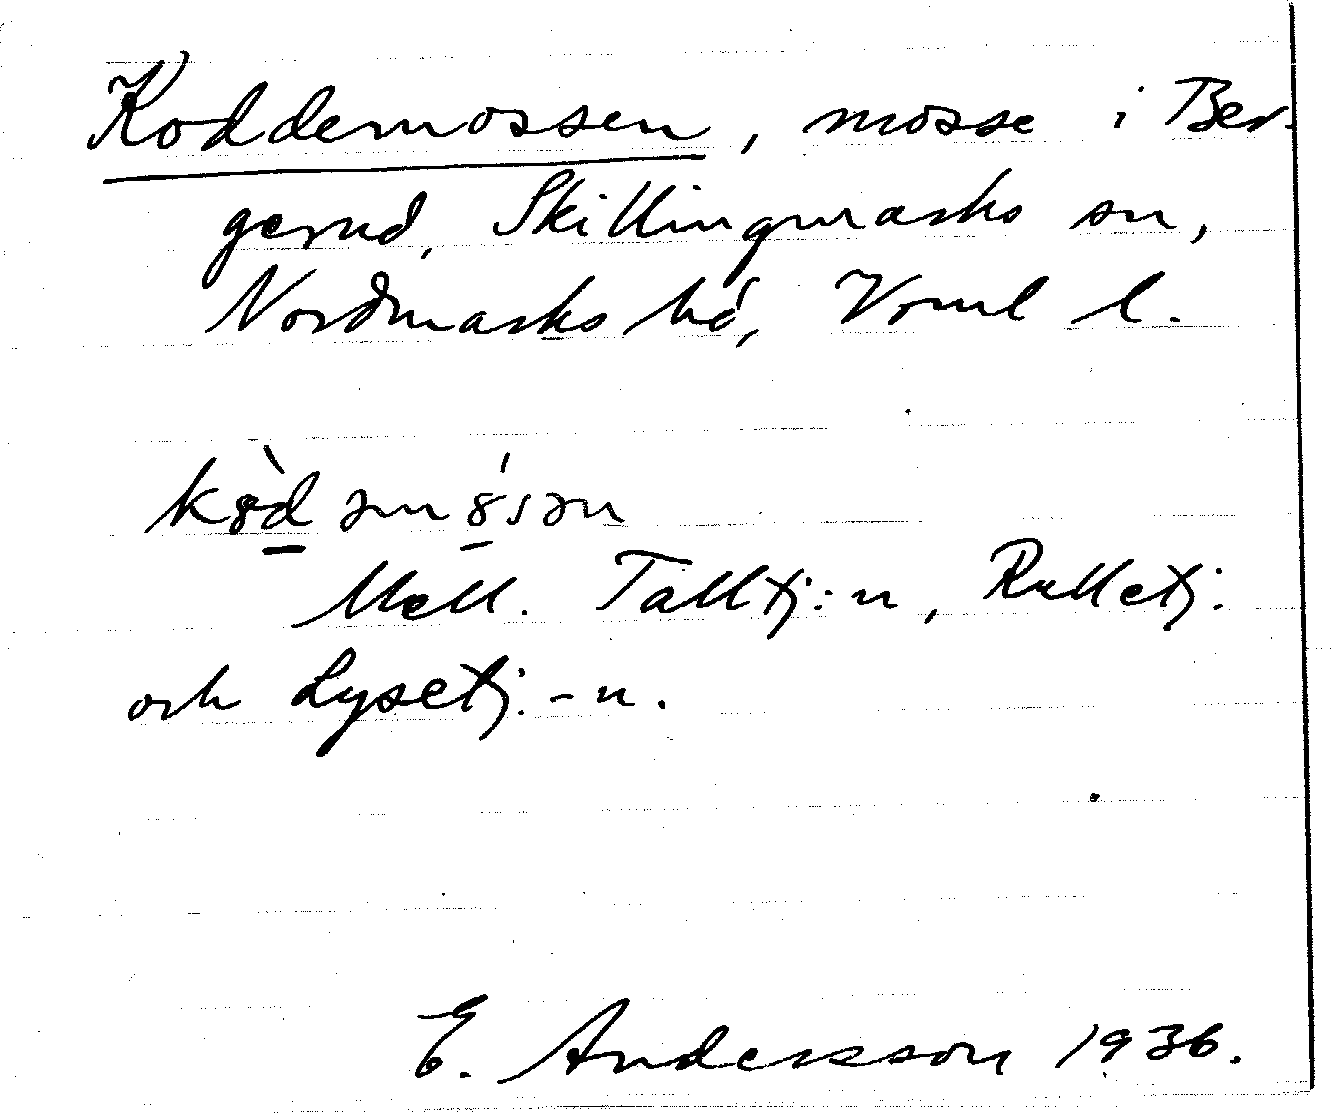 Koddemossen, mosse i Ber-
gerud, Skillingmarks sn,
Nordmarks hd, Vrml l.
kȣ̀dəmȣ́sən
Mell. Talltj:n, Rulletj:
och Lysetj:-n.
E. Andersson 1936.